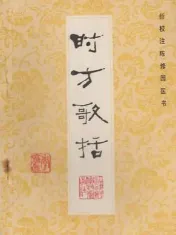 时方歌括
新校注陈修园医书